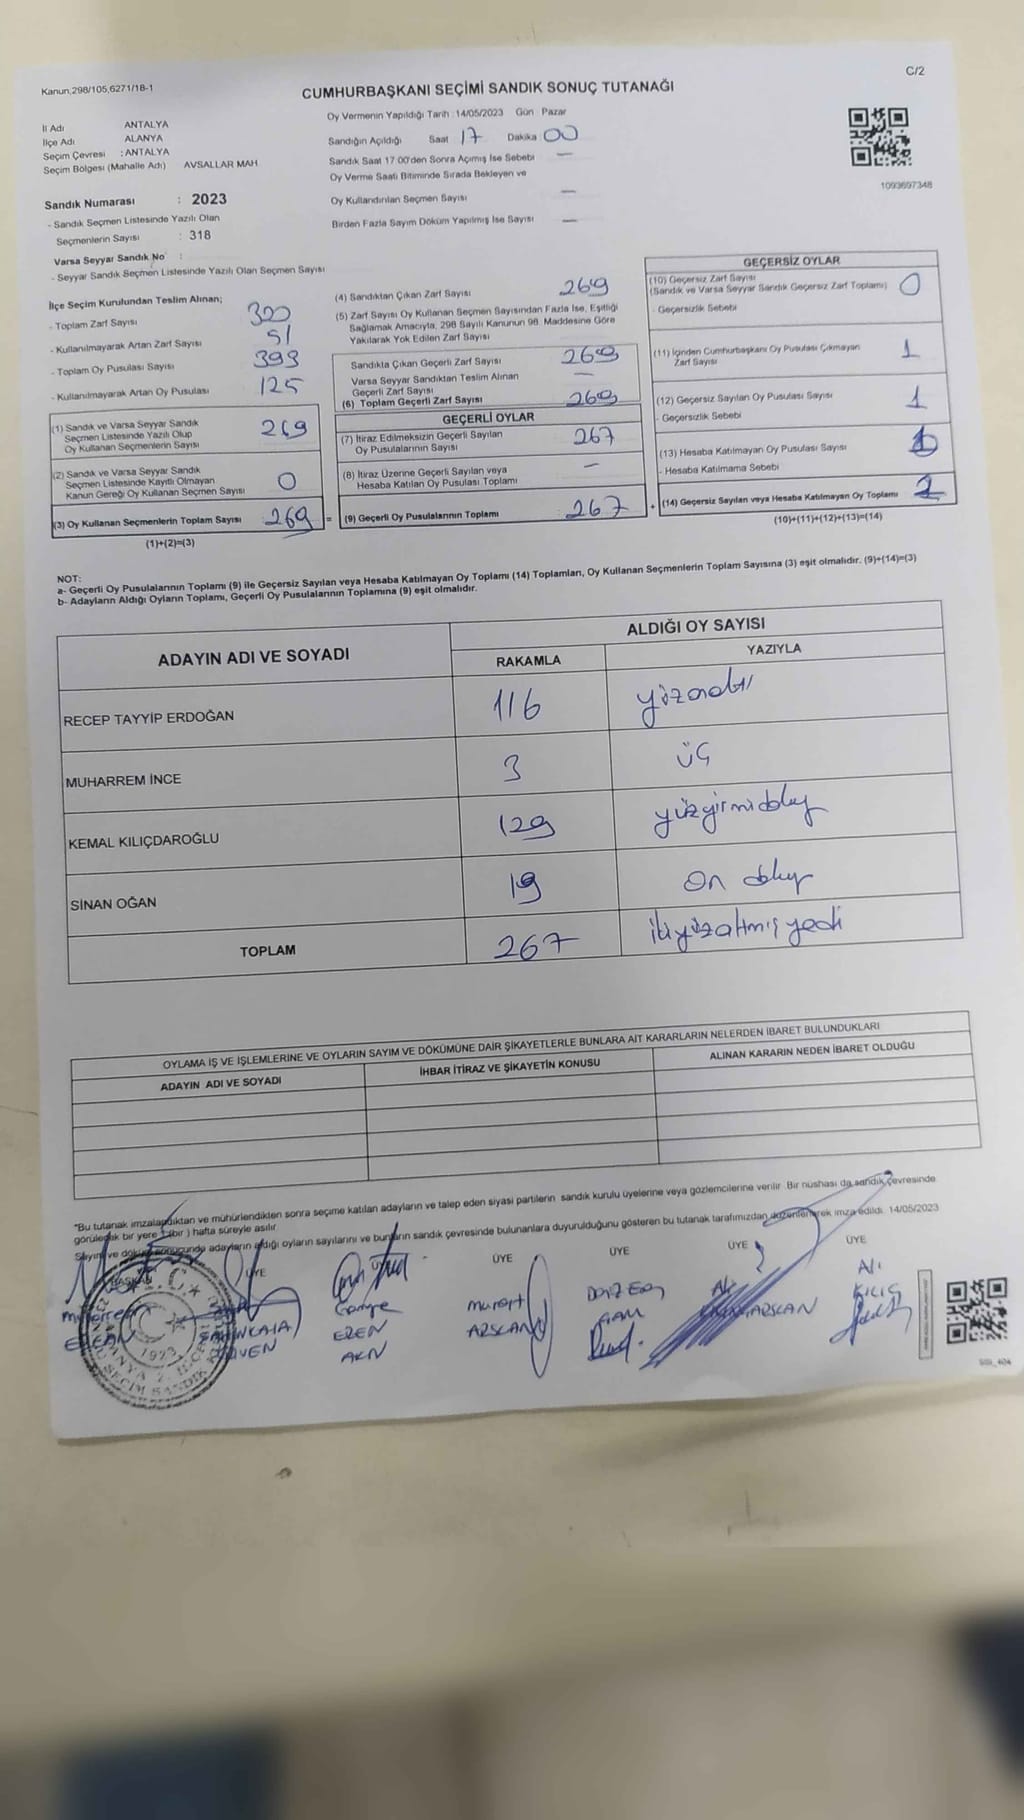 Kanun,298/105,6271/18-1
C/2
CUMHURBAŞKANI SEÇİMİ SANDIK SONUÇ TUTANAĞI
İl Adı ANTALYA
İlçe Adı ALANYA
Seçim Çevresi : ANTALYA
Seçim Bölgesi (Mahalle Adı) AVSALLAR MAH.
Sandık Numarası : 2023
- Sandık Seçmen Listesinde Yazılı Olan
Seçmenlerin Sayısı : 318
Varsa Seyyar Sandık No :
- Seyyar Sandık Seçmen Listesinde Yazılı Olan Seçmen Sayısı
Oy Vermenin Yapıldığı Tarih :14/05/2023 Gün Pazar
Sandığın Açıldığı Saat 17 Dakika 00
Sandık Saat 17:00'den Sonra Açılmış İse Sebebi —
Oy Verme Saati Bitiminde Sırada Bekleyen ve
Oy Kullandırılan Seçmen Sayısı —
Birden Fazla Sayım Döküm Yapılmış İse Sayısı —
1093697348
İlçe Seçim Kurulundan Teslim Alınan;
- Toplam Zarf Sayısı 320
- Kullanılmayarak Artan Zarf Sayısı 51
- Toplam Oy Pusulası Sayısı 393
- Kullanılmayarak Artan Oy Pusulası 125
(1) Sandık ve Varsa Seyyar Sandık
Seçmen Listesinde Yazılı Olup
Oy Kullanan Seçmenlerin Sayısı 269
(2) Sandık ve Varsa Seyyar Sandık
Seçmen Listesinde Kayıtlı Olmayan
Kanun Gereği Oy Kullanan Seçmen Sayısı 0
(3) Oy Kullanan Seçmenlerin Toplam Sayısı 269 =
(1)+(2)=(3)
(4) Sandıktan Çıkan Zarf Sayısı 269
(5) Zarf Sayısı Oy Kullanan Seçmen Sayısından Fazla İse, Eşitliği
Sağlamak Amacıyla, 298 Sayılı Kanunun 98. Maddesine Göre
Yakılarak Yok Edilen Zarf Sayısı
Sandıkta Çıkan Geçerli Zarf Sayısı 269
Varsa Seyyar Sandıktan Teslim Alınan
Geçerli Zarf Sayısı —
(6) Toplam Geçerli Zarf Sayısı 269
GEÇERLİ OYLAR
(7) İtiraz Edilmeksizin Geçerli Sayılan
Oy Pusulalarının Sayısı 267
(8) İtiraz Üzerine Geçerli Sayılan veya
Hesaba Katılan Oy Pusulası Toplamı —
(9) Geçerli Oy Pusulalarının Toplamı 267 +
GEÇERSİZ OYLAR
(10) Geçersiz Zarf Sayısı
(Sandık ve Varsa Seyyar Sandık Geçersiz Zarf Toplamı) 0
- Geçersizlik Sebebi
(11) İçinden Cumhurbaşkanı Oy Pusulası Çıkmayan
Zarf Sayısı 1
(12) Geçersiz Sayılan Oy Pusulası Sayısı 1
- Geçersizlik Sebebi
(13) Hesaba Katılmayan Oy Pusulası Sayısı
- Hesaba Katılmama Sebebi
(14) Geçersiz Sayılan veya Hesaba Katılmayan Oy Toplamı 2
(10)+(11)+(12)+(13)=(14)
NOT:
a- Geçerli Oy Pusulalarının Toplamı (9) ile Geçersiz Sayılan veya Hesaba Katılmayan Oy Toplamı (14) Toplamları, Oy Kullanan Seçmenlerin Toplam Sayısına (3) eşit olmalıdır. (9)+(14)=(3)
b- Adayların Aldığı Oyların Toplamı, Geçerli Oy Pusulalarının Toplamına (9) eşit olmalıdır.
ADAYIN ADI VE SOYADI
ALDIĞI OY SAYISI
RAKAMLA YAZIYLA
RECEP TAYYİP ERDOĞAN 116
MUHARREM İNCE 3 üç
KEMAL KILIÇDAROĞLU 129 yüzyirmidokuz
SİNAN OĞAN 19 On dokuz
TOPLAM 267 ikiyüzaltmış yedi
OYLAMA İŞ VE İŞLEMLERİNE VE OYLARIN SAYIM VE DÖKÜMÜNE DAİR ŞİKAYETLERLE BUNLARA AİT KARARLARIN NELERDEN İBARET BULUNDUKLARI
ADAYIN ADI VE SOYADI İHBAR İTİRAZ VE ŞİKAYETİN KONUSU ALINAN KARARIN NEDEN İBARET OLDUĞU
"Bu tutanak imzalandıktan ve mühürlendikten sonra seçime katılan adayların ve talep eden siyasi partilerin sandık kurulu üyelerine veya gözlemcilerine verilir. Bir nüshası da sandık çevresinde
görülecek bir yere 1 (bir) hafta süreyle asılır.
Sayım ve döküm sonucunda adayların aldığı oyların sayılarını ve bunların sandık çevresinde bulunanlara duyurulduğunu gösteren bu tutanak tarafımızdan düzenlenerek imza edildi. 14/05/2023
BAŞKAN ÜYE ÜYE ÜYE ÜYE ÜYE ÜYE
EREN
AKN
murat
ARSLAN
Ali
ARSLAN
Ali
KILIÇ
T.C.
1923